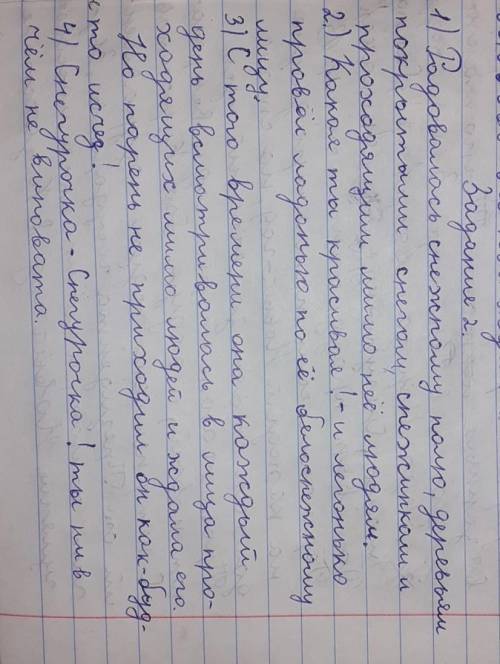 Задание 2.
1) Радовалась снежному полю, деревьям
покрытыми снегом, снежинкам и
проходящим мимо неё людям.
2.) Какая ты красивая! - и легонько
провёл ладонью по её белоснежному
лицу.
3) С того времени она каждый
день всматривалась в лица про-
ходящих мимо людей и ждала его.
Но парень не приходил он как-буд-
то исчез!
4) Снегурочка - Снегурочка! ты ни в
чём не виновата.